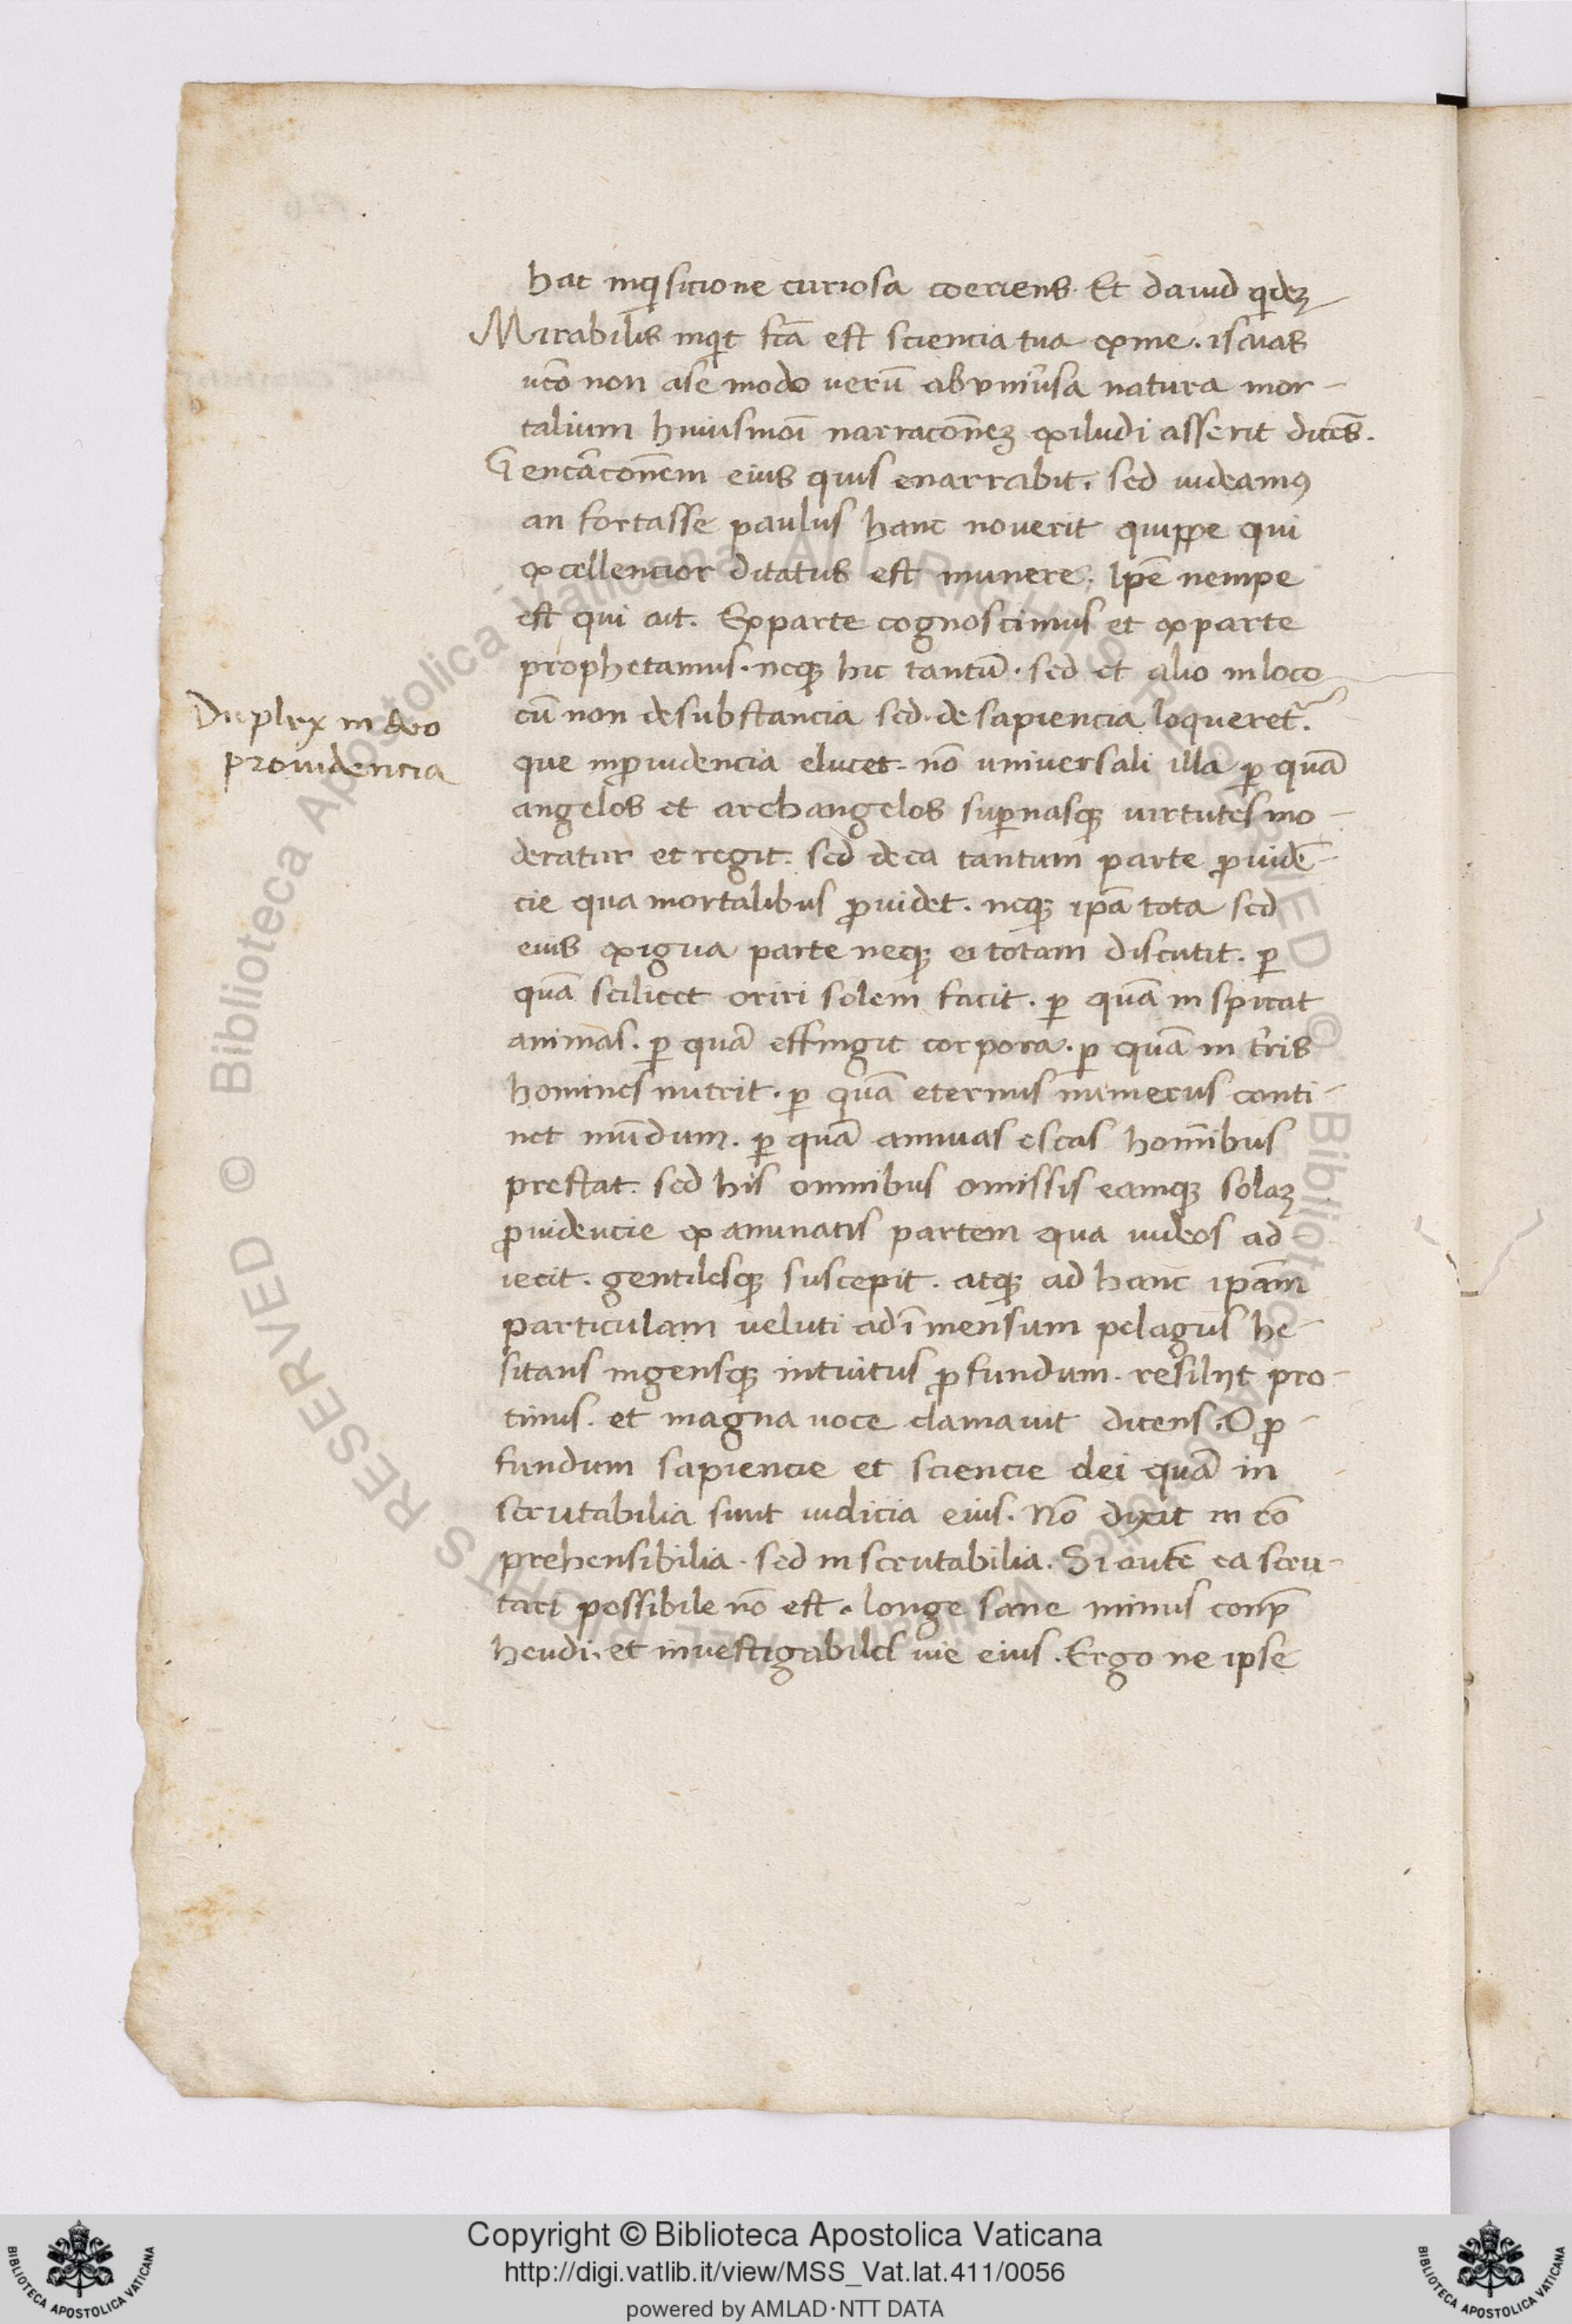 hac inq̃sicione curiosa coercens. Et dauid q̃deꝫ
Mirabilis inq̃t fc̃a est sciencia tua ex me. isaias
uẽo non ase modo uerũ ab vniũsa natura mor-
talium huiusmoĩ narracoẽꝫ excludi asserit dicẽs.
Genẽracoñem eius quis enarrabit. sed uideamꝰ
an fortasse paulus hanc noverit quippe qui
excellencior ditatus est munere. Ip̃e nempe
est qui ait. Ex parte cognoscimus et ex parte
prophetamus. neqꝫ hic tantũ. sed et alio in loco
cũ non de substancia sed. de sapiencia loqueret᷑.
Duplex in deo
prouidencia
que in ꝓuidencia elucet. nõ universali illa ꝑ quã
angelos et archangelos suꝑnasqꝫ uirtutes mo-
deratur et regit. sed de ea tantum parte ꝓuidẽ-
cie qua mortalibus ꝓuidet. neqꝫ ip̃a tota sed
eius exigua parte neqꝫ ei totam discutit. ꝑ
quã scilicet oriri solem facit. ꝑ quã inspirat
animas. ꝑ quã effingit corpora. ꝑ quã in tr̃is
homines nutrit. ꝑ quã eternus numerus conti-
net mũdum. ꝑ quã annuas escas hom̃ibus
prestat. sed his omnibus omissis eamqꝫ solaꝫ
ꝓuidencie examinatis partem qua iudeos ad
iecit. gentilesqꝫ suscepit. atqꝫ ad hanc ip̃am
particulam veluti ad ĩmensum pelagus he-
sitans ingensqꝫ intuitus ꝓfundum. resilijt pro-
tinus. et magna uoce clamauit dicens. O ꝓ-
fundum sapiencie et sciencie dei quã in
scrutabilia sunt iudicia eius. Nõ dixit in cõ
prehensibilia. sed in scrutabilia. Si autẽ ea scru-
tari possibile nõ est. longe sane minus conp̃
hendi. et investigabiles uie eius. Ergo ne ipse
Copyright © Biblioteca Apostolica Vaticana
http://digi.vatlib.it/view/MSS_Vat.lat.411/0056
powered by AMLAD·NTT DATA
BIBLIOTECA APOSTOLICA VATICANA
BIBLIOTECA APOSTOLICA VATICANA